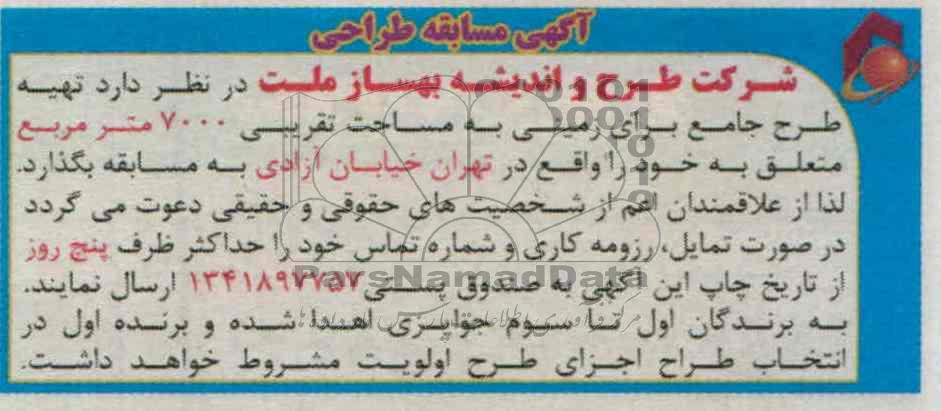 آگهی مسابقه طراحی
شرکت طرح و اندیشه بهساز ملت در نظر دارد تهیه
طرح جامع برای زمینی به مساحت تقریبی ۷۰۰۰ متر مربع
متعلق به خود را واقع در تهران خیابان آزادی به مسابقه بگذارد.
لذا از علاقمندان اعم از شخصیت های حقوقی و حقیقی دعوت می گردد
در صورت تمایل، رزومه کاری و شماره تماس خود را حداکثر ظرف پنج روز
از تاریخ چاپ این آگهی به صندوق پستی ۱۳۴۱۸۹۷۷۵۷ ارسال نمایند.
به برندگان اول تا سوم جوایزی اهدا شده و برنده اول در
انتخاب طراح اجزای طرح اولویت مشروط خواهد داشت.
ParsNamadData